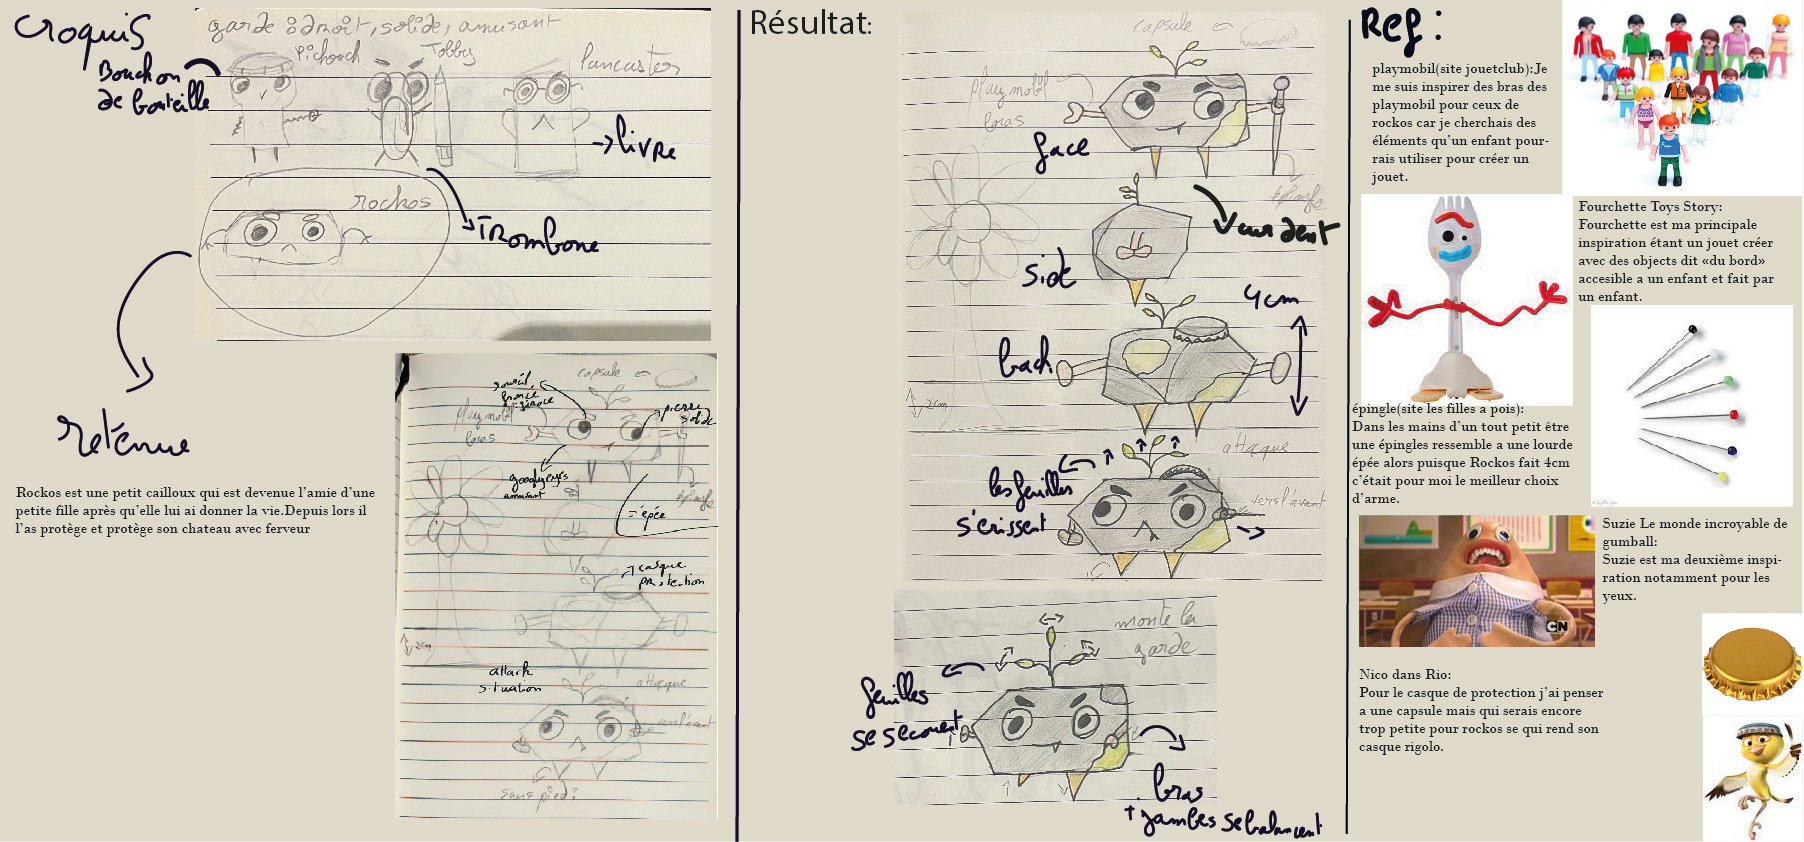 Croquis
garde : droit, solide, amusant
Pichouch
Tobby
Lancaster
Bouchon
de bouteille
→ livre
rockos
Trombone
retenue
Rockos est une petit cailloux qui est devenue l'amie d'une
petite fille après qu'elle lui ai donner la vie.Depuis lors il
l'as protège et protège son chateau avec ferveur
capsule
playmobil
bras
pierre
solide
googly eyes
amusant
épingle
= épée
casque
protection
2cm
attack
situation
attaque
vers l'avant
sans pied?
Résultat:
capsule
playmobil
bras
face
épingle
Cure dent
side
4cm
back
2cm
attaque
les feuilles
s'érissent
vers l'avant
monte la
garde
feuilles
se secouent
bras
+ jambes se balancent
Ref :
playmobil(site jouetclub):Je
me suis inspirer des bras des
playmobil pour ceux de
rockos car je cherchais des
éléments qu'un enfant pour-
rais utiliser pour créer un
jouet.
Fourchette Toys Story:
Fourchette est ma principale
inspiration étant un jouet créer
avec des objects dit «du bord»
accesible a un enfant et fait par
un enfant.
épingle(site les filles a pois):
Dans les mains d'un tout petit être
une épingles ressemble a une lourde
épée alors puisque Rockos fait 4cm
c'était pour moi le meilleur choix
d'arme.
Suzie Le monde incroyable de
gumball:
Suzie est ma deuxième inspi-
ration notamment pour les
yeux.
CN
Nico dans Rio:
Pour le casque de protection j'ai penser
a une capsule mais qui serais encore
trop petite pour rockos se qui rend son
casque rigolo.